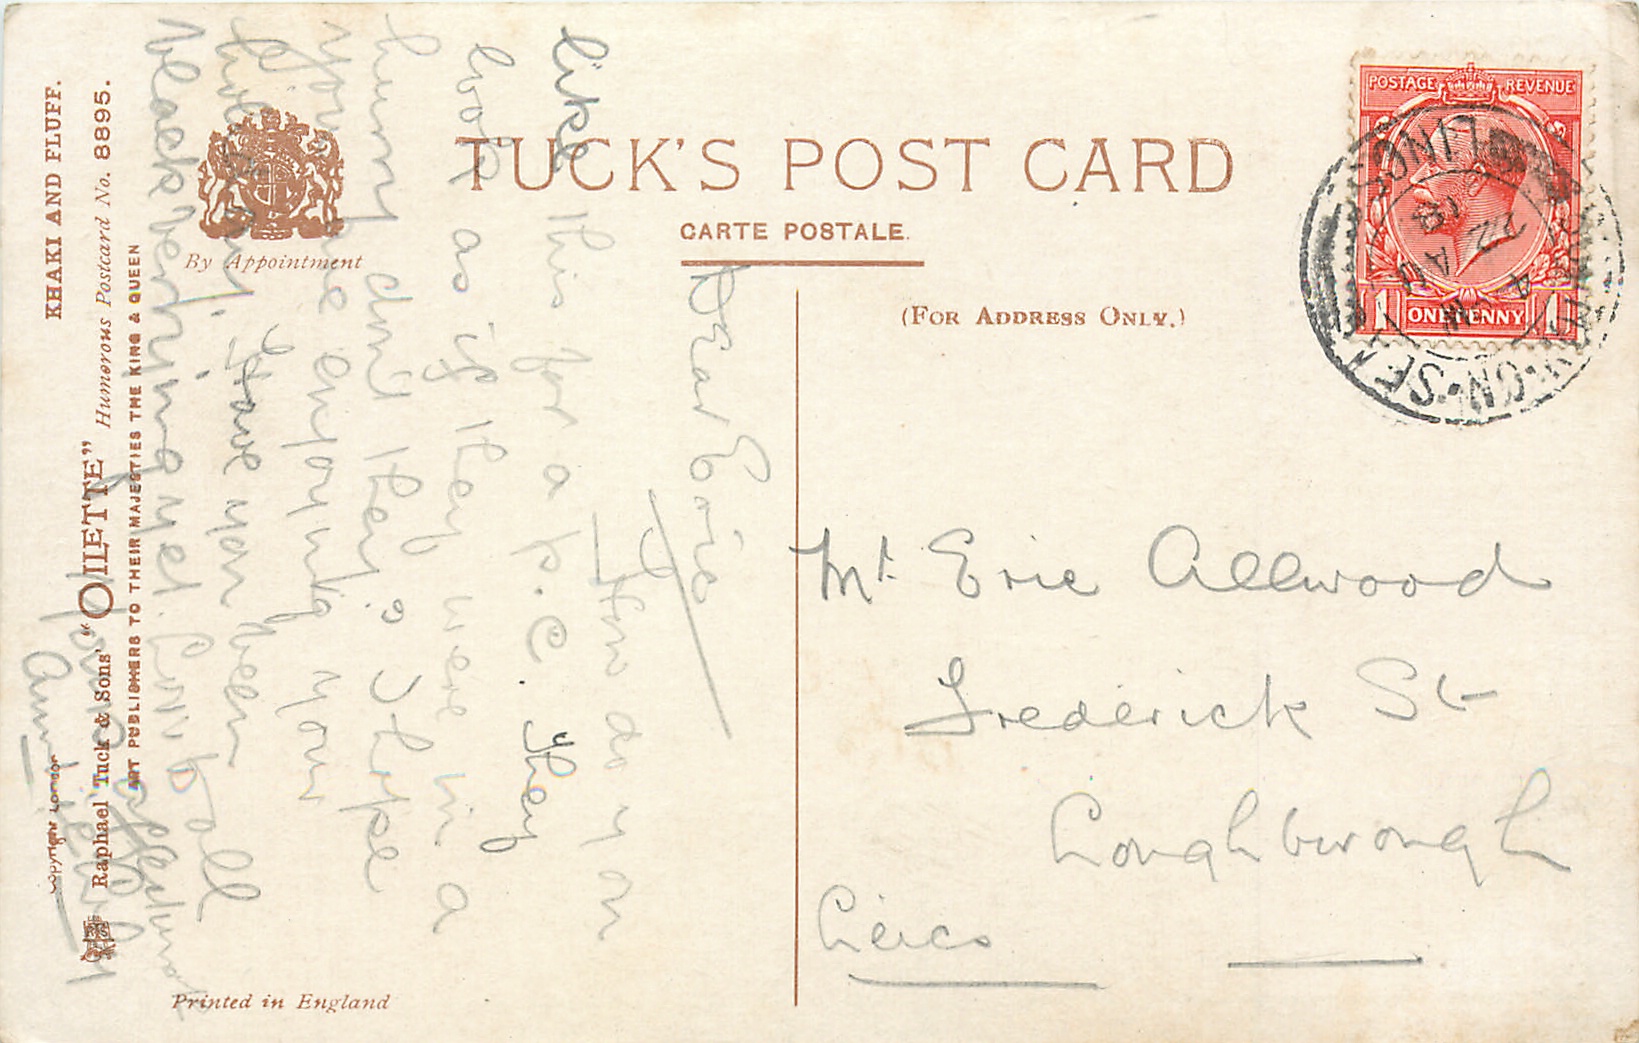 TUCK'S POST CARD
CARTE POSTALE.
(FOR ADDRESS ONLY.)
By Appointment
POSTAGE REVENUE
1 ONE PENNY 1
22 AU
18
Dear Eric
How do you
like this for a p.c. They
look as if they were in a
hurry don't they? I hope
you are enjoying your
holiday. Have you been
blackberrying yet. Love to all
Your affectionate
Mr. Eric Allwood
Frederick St
Loughborough
Leics
KHAKI AND FLUFF.
Raphael Tuck & Sons' "OILETTE" Humorous Postcard No. 8895.
ART PUBLISHERS TO THEIR MAJESTIES THE KING & QUEEN
Copyright London
Printed in England